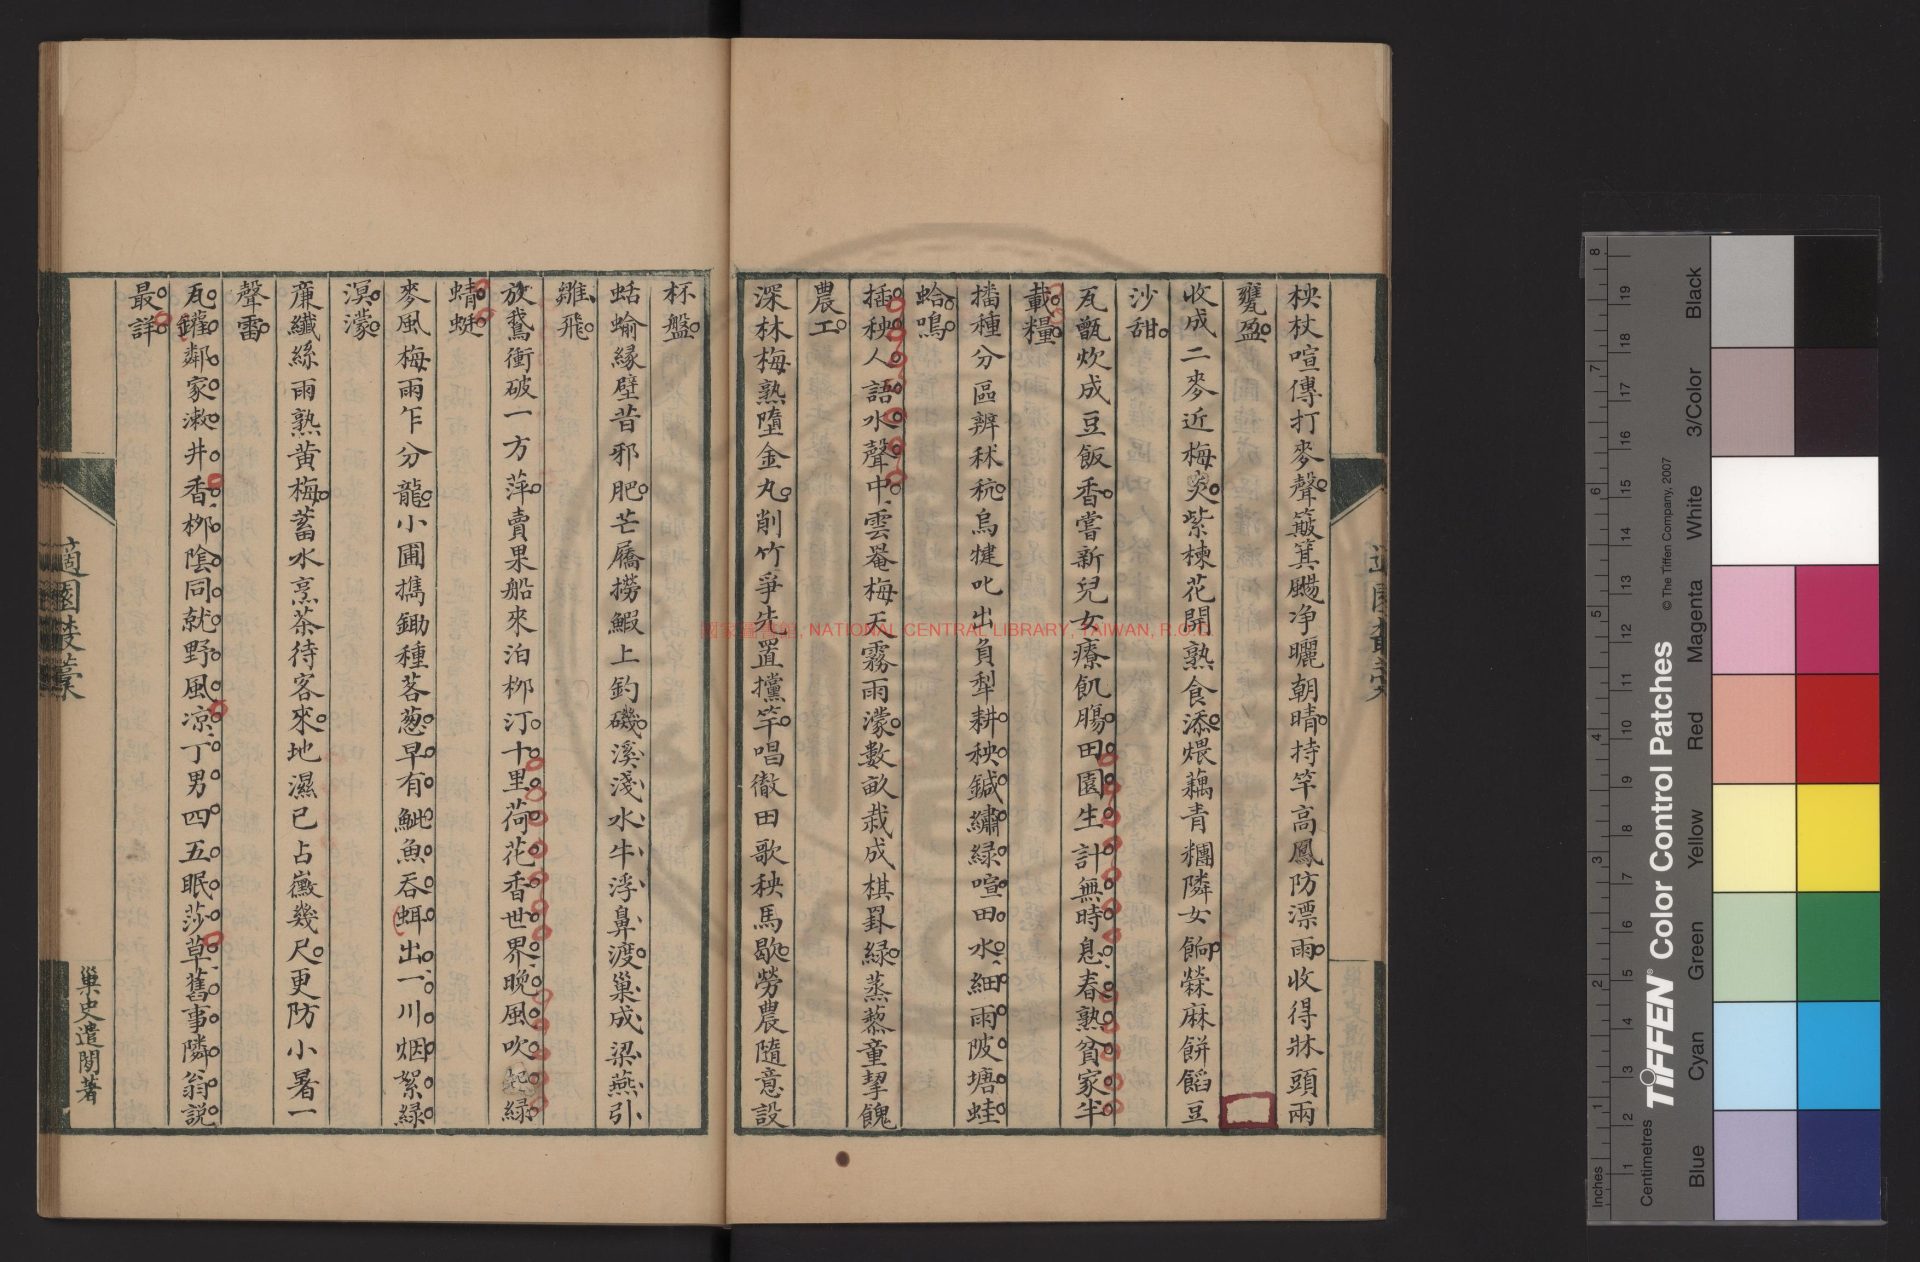 柍杖喧傳打麥聲簸箕颺净曬朝晴持竿高鳳防漂雨收得牀頭兩
甕盈
收成二麥近梅炎紫楝花開熟食添煨藕青糰隣女餉藥麻餅餡豆
沙甜
瓦甑炊成豆飯香嘗新兒女療飢腸田園生計無時息春熟貧家半
載糧
播種分區辨秫秔烏犍叱出負犁耕秧鍼繡綠喧田水細雨陂塘蛙
蛤鳴
插秧人語水聲中雲罨梅天霧雨濛數畝栽成棋罫綠蒸藜童挈餽
農工
深林梅熟墮金丸削竹爭先置攩竿唱徹田歌秧馬歇勞農隨意設
杯盤
蛞蝓緣壁昔邪肥芒屩撈鰕上釣磯溪淺水牛浮鼻渡巢成梁燕引
雛飛
放鵞衝破一方萍賣果船來泊柳汀十里荷花香世界晚風吹起綠
蜻蜓
麥風梅雨乍分龍小圃攜鋤種茖葱早有魮魚吞蛆出一川烟絮綠
溟濛
廉纖絲雨熟黃梅蓄水烹茶待客來地濕已占黴幾尺更防小暑一
聲雷
瓦鑵鄰家漱井香柳陰同就野風凉丁男四五眠莎草舊事隣翁説
最詳
適園叢稾
巢史遺閣著
國家圖書館, NATIONAL CENTRAL LIBRARY, TAIWAN, R.O.C.
Inches
Centimetres
TIFFEN® Color Control Patches
© The Tiffen Company, 2007
Blue
Cyan
Green
Yellow
Red
Magenta
White
3/Color
Black